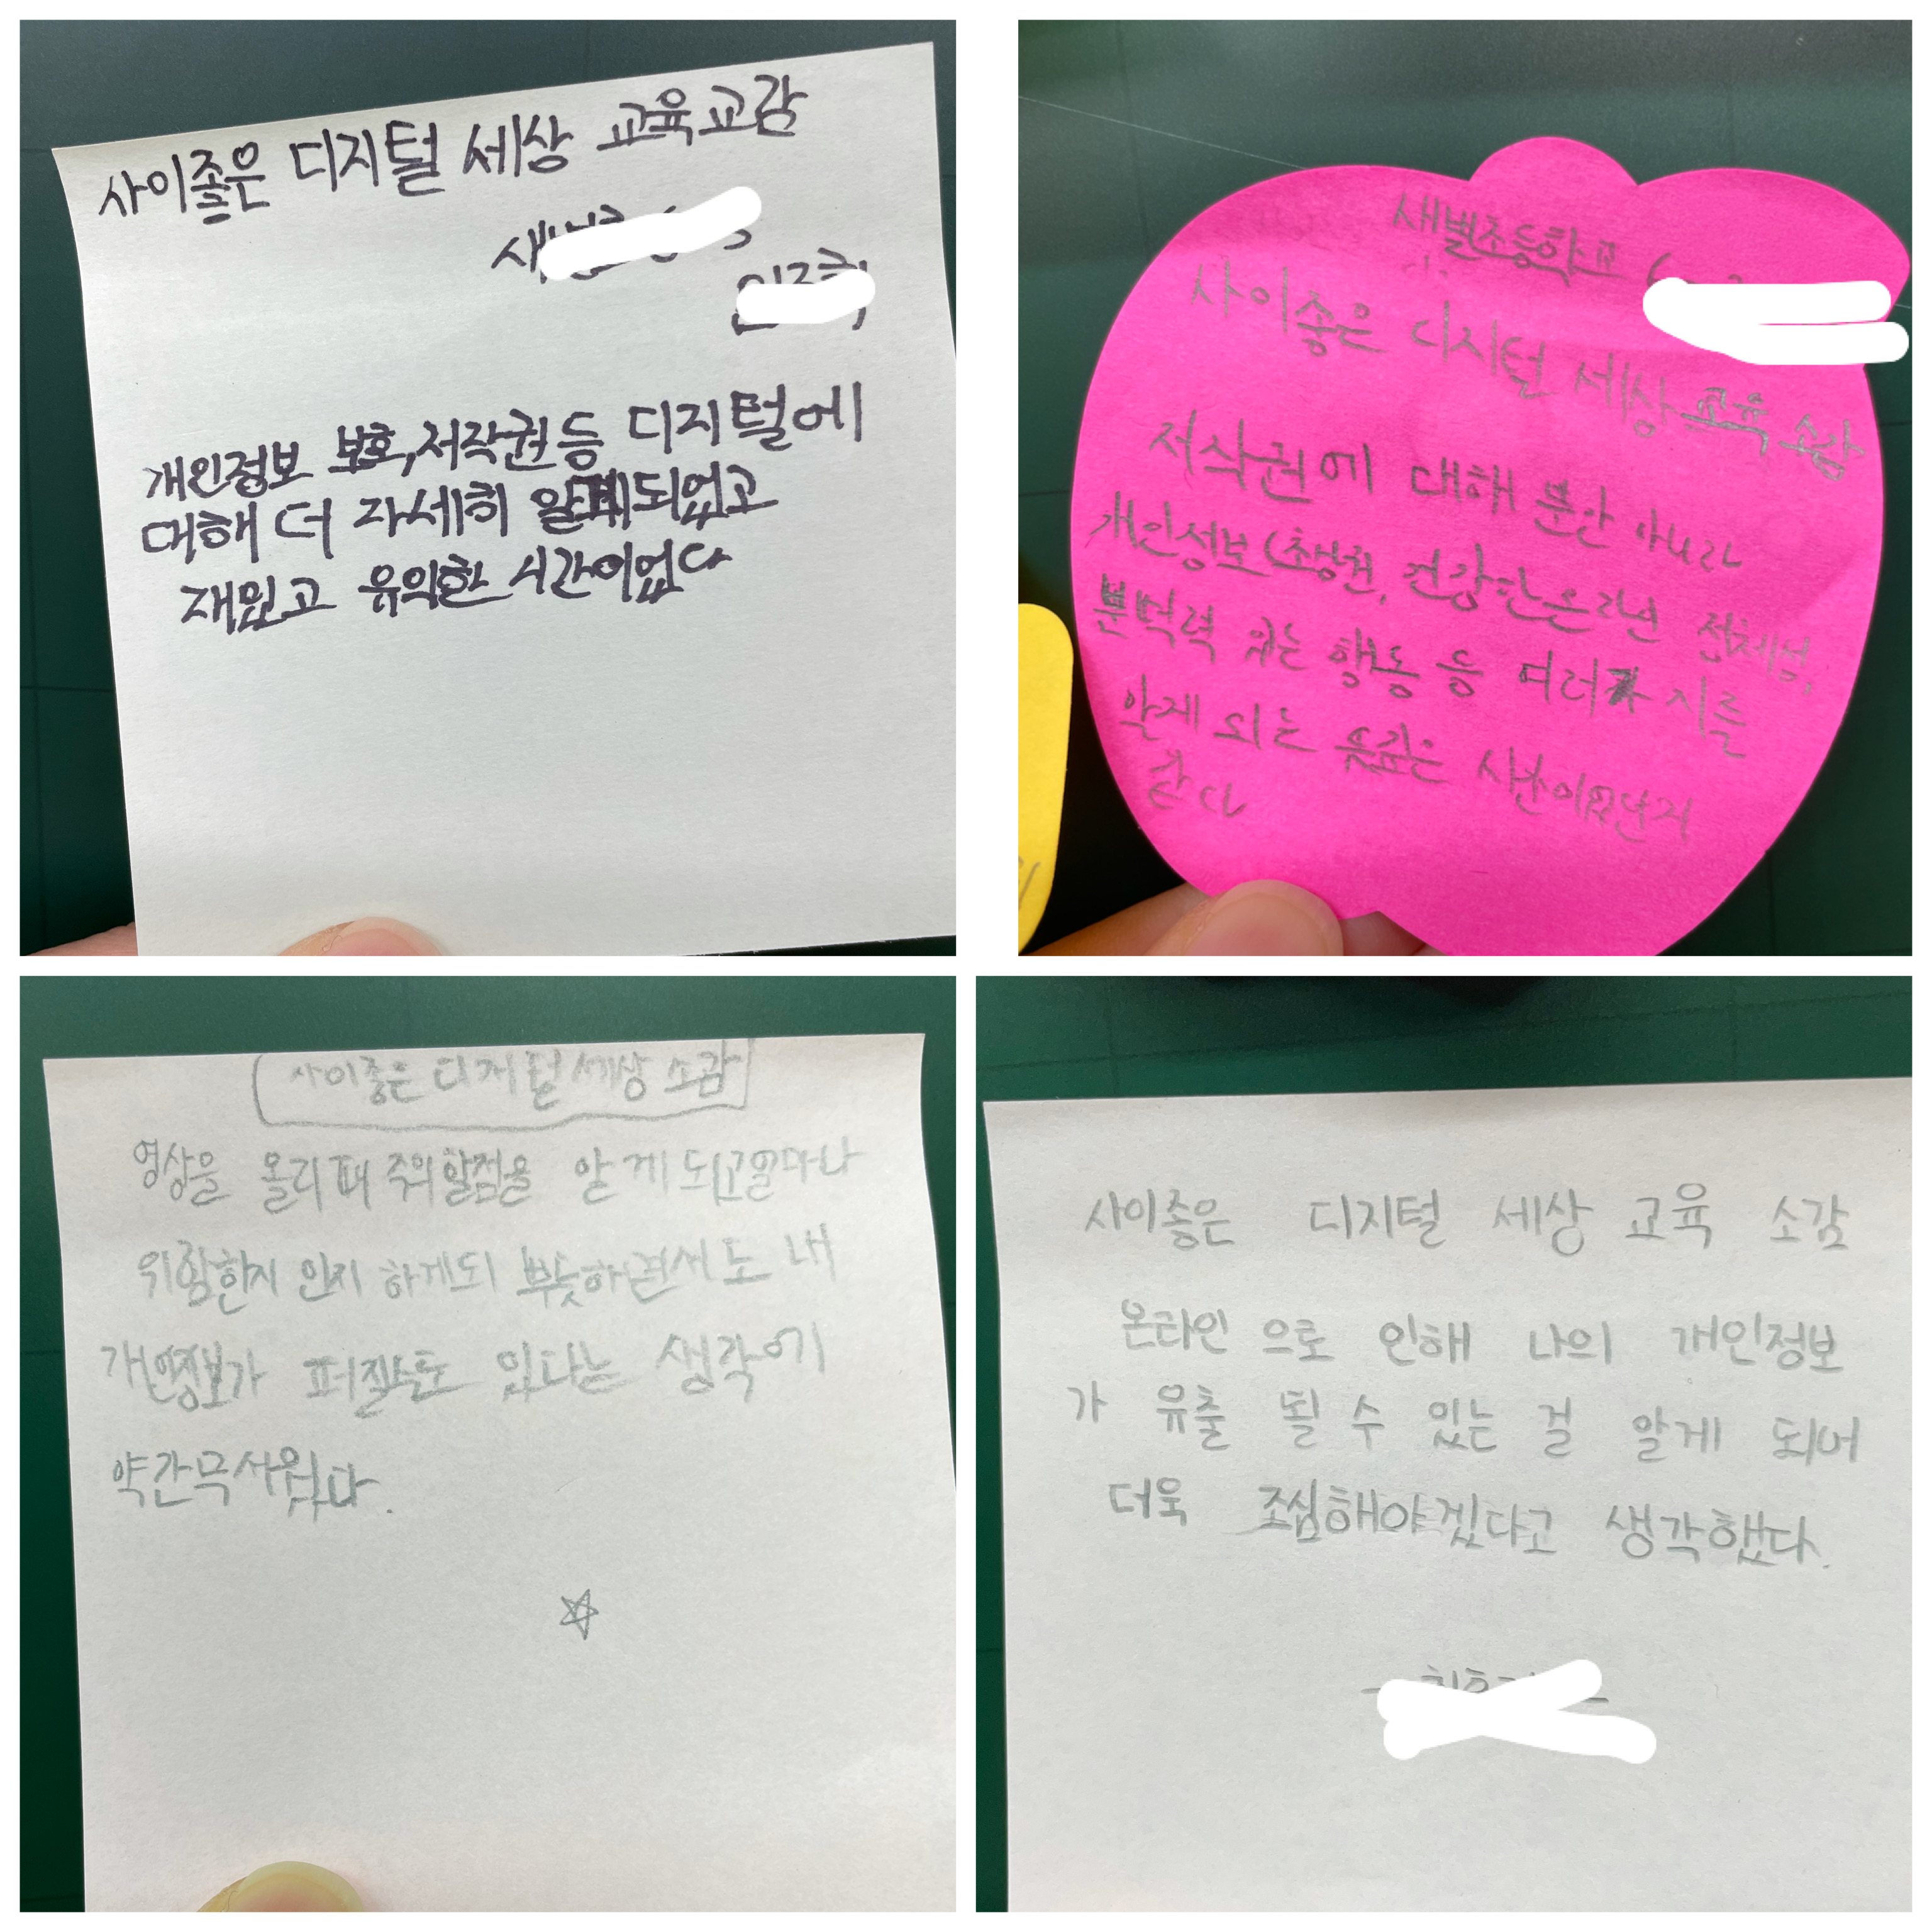 사이좋은 디지털 세상 교육교감
개인정보 보호, 저작권등 디지털에
대해 더 자세히 알게되었고
재밌고 유익한 시간이었다
새별초등학교
사이좋은 디지털 세상 교육 소감
저작권에 대해 뿐만 아니라
개인정보(초상권, 건강한온라인 정체성,
분별력 있는 행동 등 여러가지를
알게 되는 뜻깊은 시간이
같다
사이좋은 디지털세상 소감
영상을 올리때 주의할점을 알게되고얼마나
위험한지 인지 하게되 뿌듯하면서도 내
개인정보가 퍼질수도 있다는 생각에
약간무서웠다.
사이좋은 디지털 세상 교육 소감
온라인 으로 인해 나의 개인정보
가 유출 될 수 있는 걸 알게 되어
더욱 조심해야겠다고 생각했다.